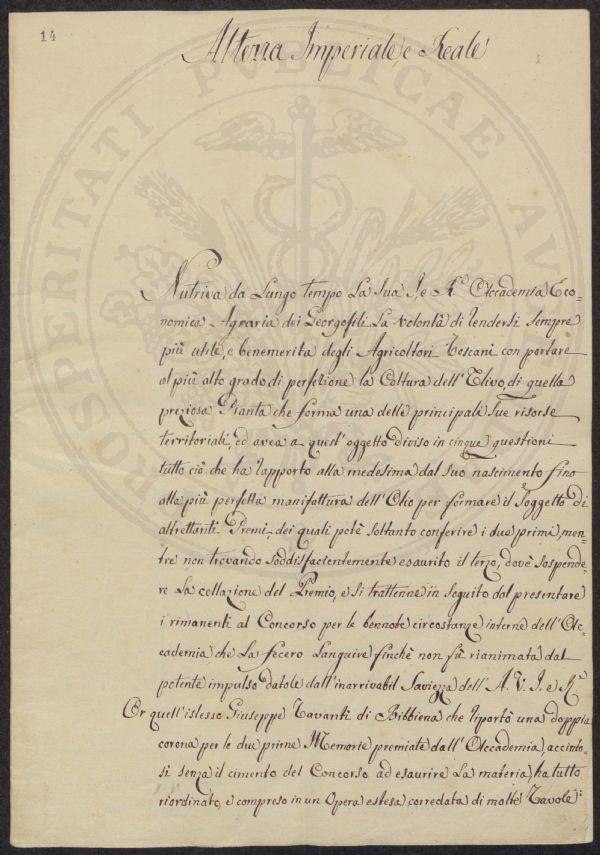 14
Altezza Imperiale e Reale
PROSPERITATI PUBLICAE AU
Nutriva da Lungo tempo La Sua I. e R. Accademia Eco=
nomica Agraria dei Georgofili La volontà di rendersi sempre
più utile, e benemerita degli Agricoltori Toscani con portare
al più alto grado di perfezione la Coltura dell'Ulivo, di quella
preziosa Pianta che forma una delle principali sue risorse
territoriali, ed avea a quest'oggetto diviso in cinque questioni
tutto ciò che ha rapporto alla medesima dal suo nascimento fino
alla più perfetta manifattura dell'Olio per formare il Soggetto di
altrettanti Premj, dei quali potè soltanto conferire i due primi, men=
tre non trovando soddisfacientemente esaurito il terzo, dovè sospende=
re La collazione del Premio, e si trattenne in seguito dal presentare
i rimanenti al Concorso per le bennote circostanze interne dell'Ac=
cademia che La fecero Languire finchè non fù rianimata dal
potente impulso datole dall'inarrivabil Saviezza dell'A. V. I. e R.
Or quell'istesso Giuseppe Tavanti di Bibbiena che riportò una doppia
corona per le due prime Memorie premiate dall'Accademia, accinto=
si senza il cimento del Concorso ad esaurire La materia, ha tutto
riordinato, e compreso in un Opera estesa corredata di molte Tavole: